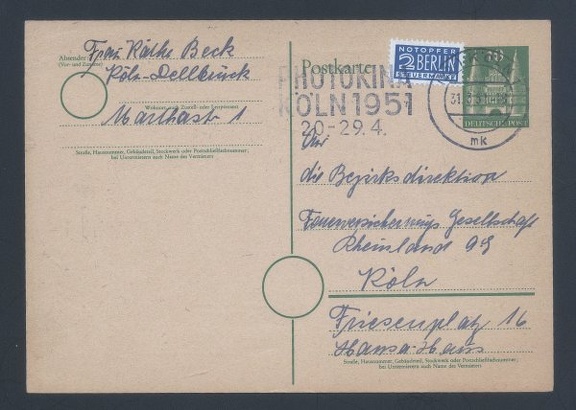 Absender: Frau Käthe Beck
(Vor- und Zuname)
Köln-Dellbrück
Marthastr 1
Straße, Hausnummer, Gebäudeteil, Stockwerk oder Postschließfachnummer;
bei Untermietern auch Name des Vermieters
NOTOPFER
2 BERLIN
STEUERMARKE
Postkarte
PHOTOKINA
KÖLN 1951
20.-29.4.
mk
DEUTSCHE POST
An
die Bezirksdirektion
Feuerversicherungs Gesellschaft
Rheinland AG
Köln
Friesenplatz 16
Hansa-Haus
Straße, Hausnummer, Gebäudeteil, Stockwerk oder Postschließfachnummer;
bei Untermietern auch Name des Vermieters